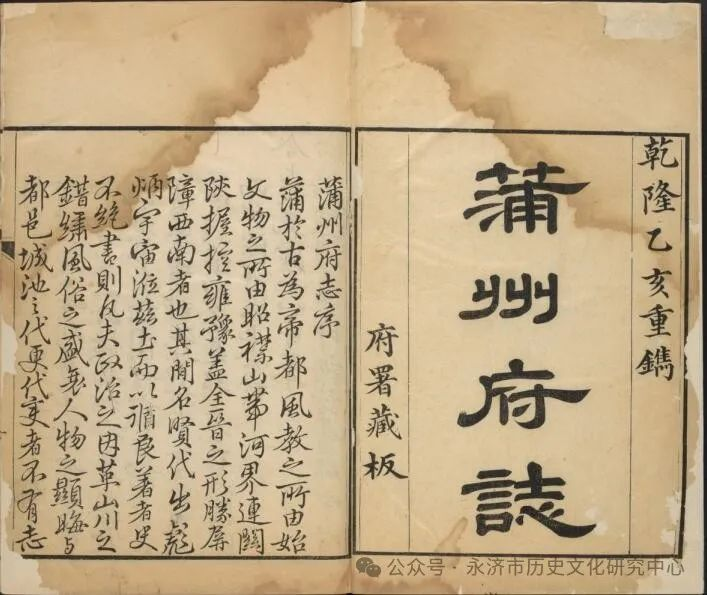 乾隆乙亥重鐫
蒲州府誌
府署藏板
蒲州府志序
蒲於古為帝都風教之所由始
文物之所由昭襟山帶河界連關
陝握控雍豫蓋全晉之形勝屏
障西南者也其間名賢代出彪
炳宇宙涖茲土而以循良著者史
不絶書則凡夫政治之因革山川之
錯繡風俗之盛衰人物之顯晦與
都邑城池之代更代變者不有志
公众号·永济市历史文化研究中心